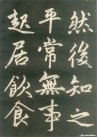 然後知之
平常無事
起居飲食